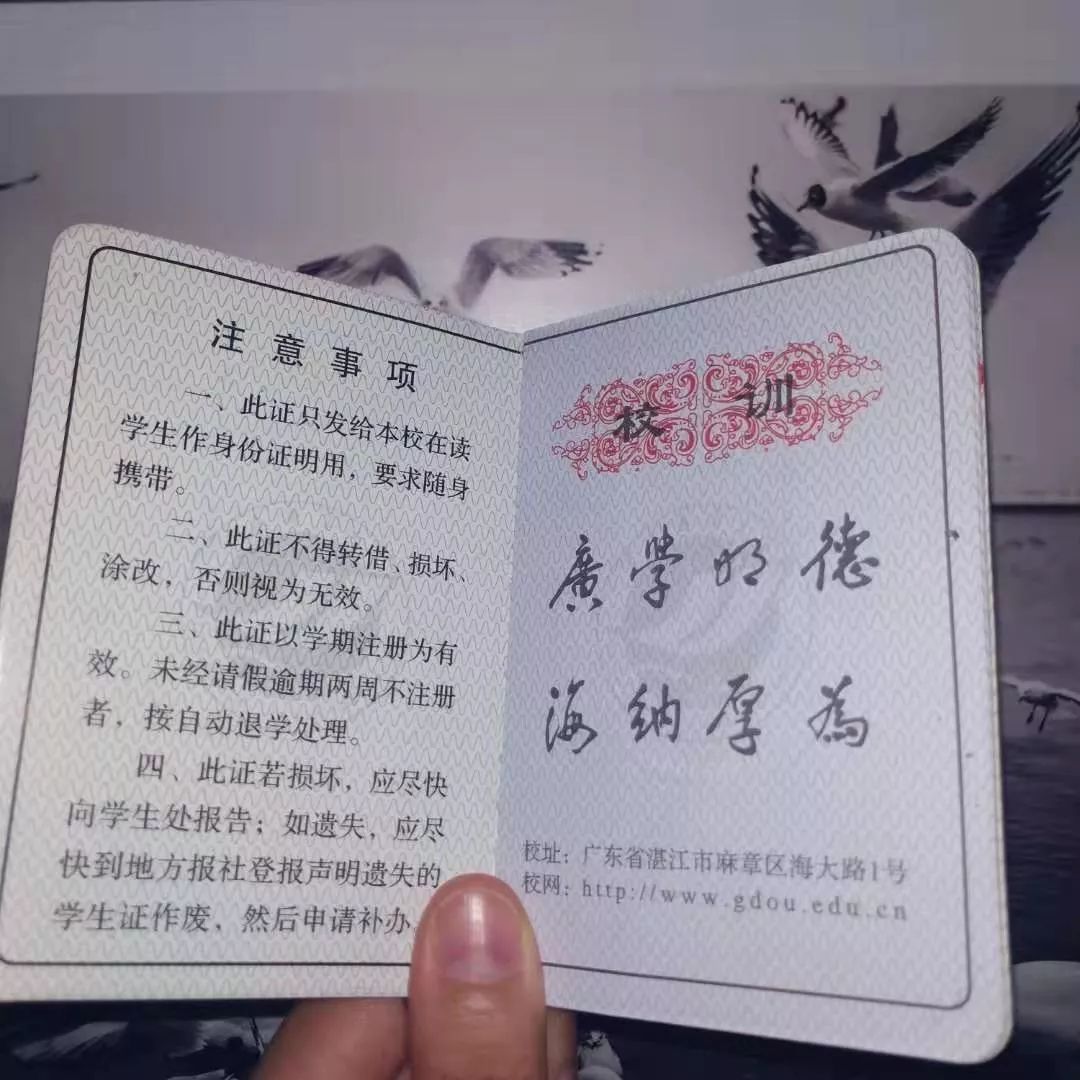 注意事项
一、此证只发给本校在读
学生作身份证明用，要求随身
携带。
二、此证不得转借、损坏、
涂改，否则视为无效。
三、此证以学期注册为有
效。未经请假逾期两周不注册
者，按自动退学处理。
四、此证若损坏，应尽快
向学生处报告；如遗失，应尽
快到地方报社登报声明遗失的
学生证作废，然后申请补办
校训
廣学明德
海纳厚為
校址：广东省湛江市麻章区海大路1号
校网：http://www.gdou.edu.cn